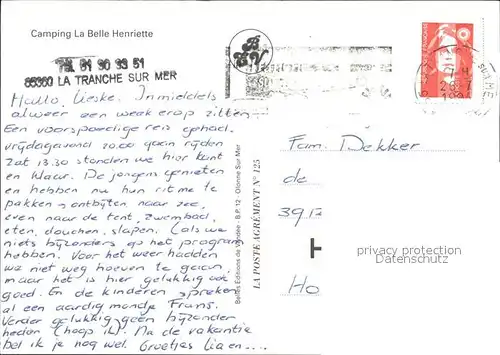 Camping La Belle Henriette
Tél. 51 90 33 51
85360 LA TRANCHE SUR MER
Hallo Lieske. Inmiddels
alweer een week erop zitten.
Een voorspoedige reis gehad.
vrijdagavond 20.00 gaan rijden
zat 13.30 stonden we hier kant
en klaar. De jongens genieten
en hebben nu hun ritme te
pakken; ontbijten, naar zee,
even naar de tent, zwembad,
eten, douchen, slapen. (als we
niets bijzonders op het program
hebben. Voor het weer hadden
we niet weg hoeven te gaan,
maar het is hier gelukkig ook
goed. En de kinderen spreken
al een aardig mondje Frans.
Verder gelukkig geen bijzonder
heden (hoop ik). Na de vakantie
bel ik je nog wel. Groetjes
Bellevue Editions de Vendée - B.P. 12 - Olonne Sur Mer
LA POSTE AGRÉMENT N° 125
Fam. Dekker
de
39.12
H
Ho
privacy protection
Datenschutz